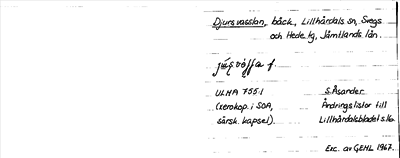 Djursvasslan, bäck, Lillhärdals sn, Svegs
och Hede tg, Jämtlands län.
ULMA 755:1
(xerokop. i SOA,
särsk. kapsel).
S. Åsander
Ändringslistor till
Lillhärdalsbladet s.16.
Exc. av GEHL 1967.